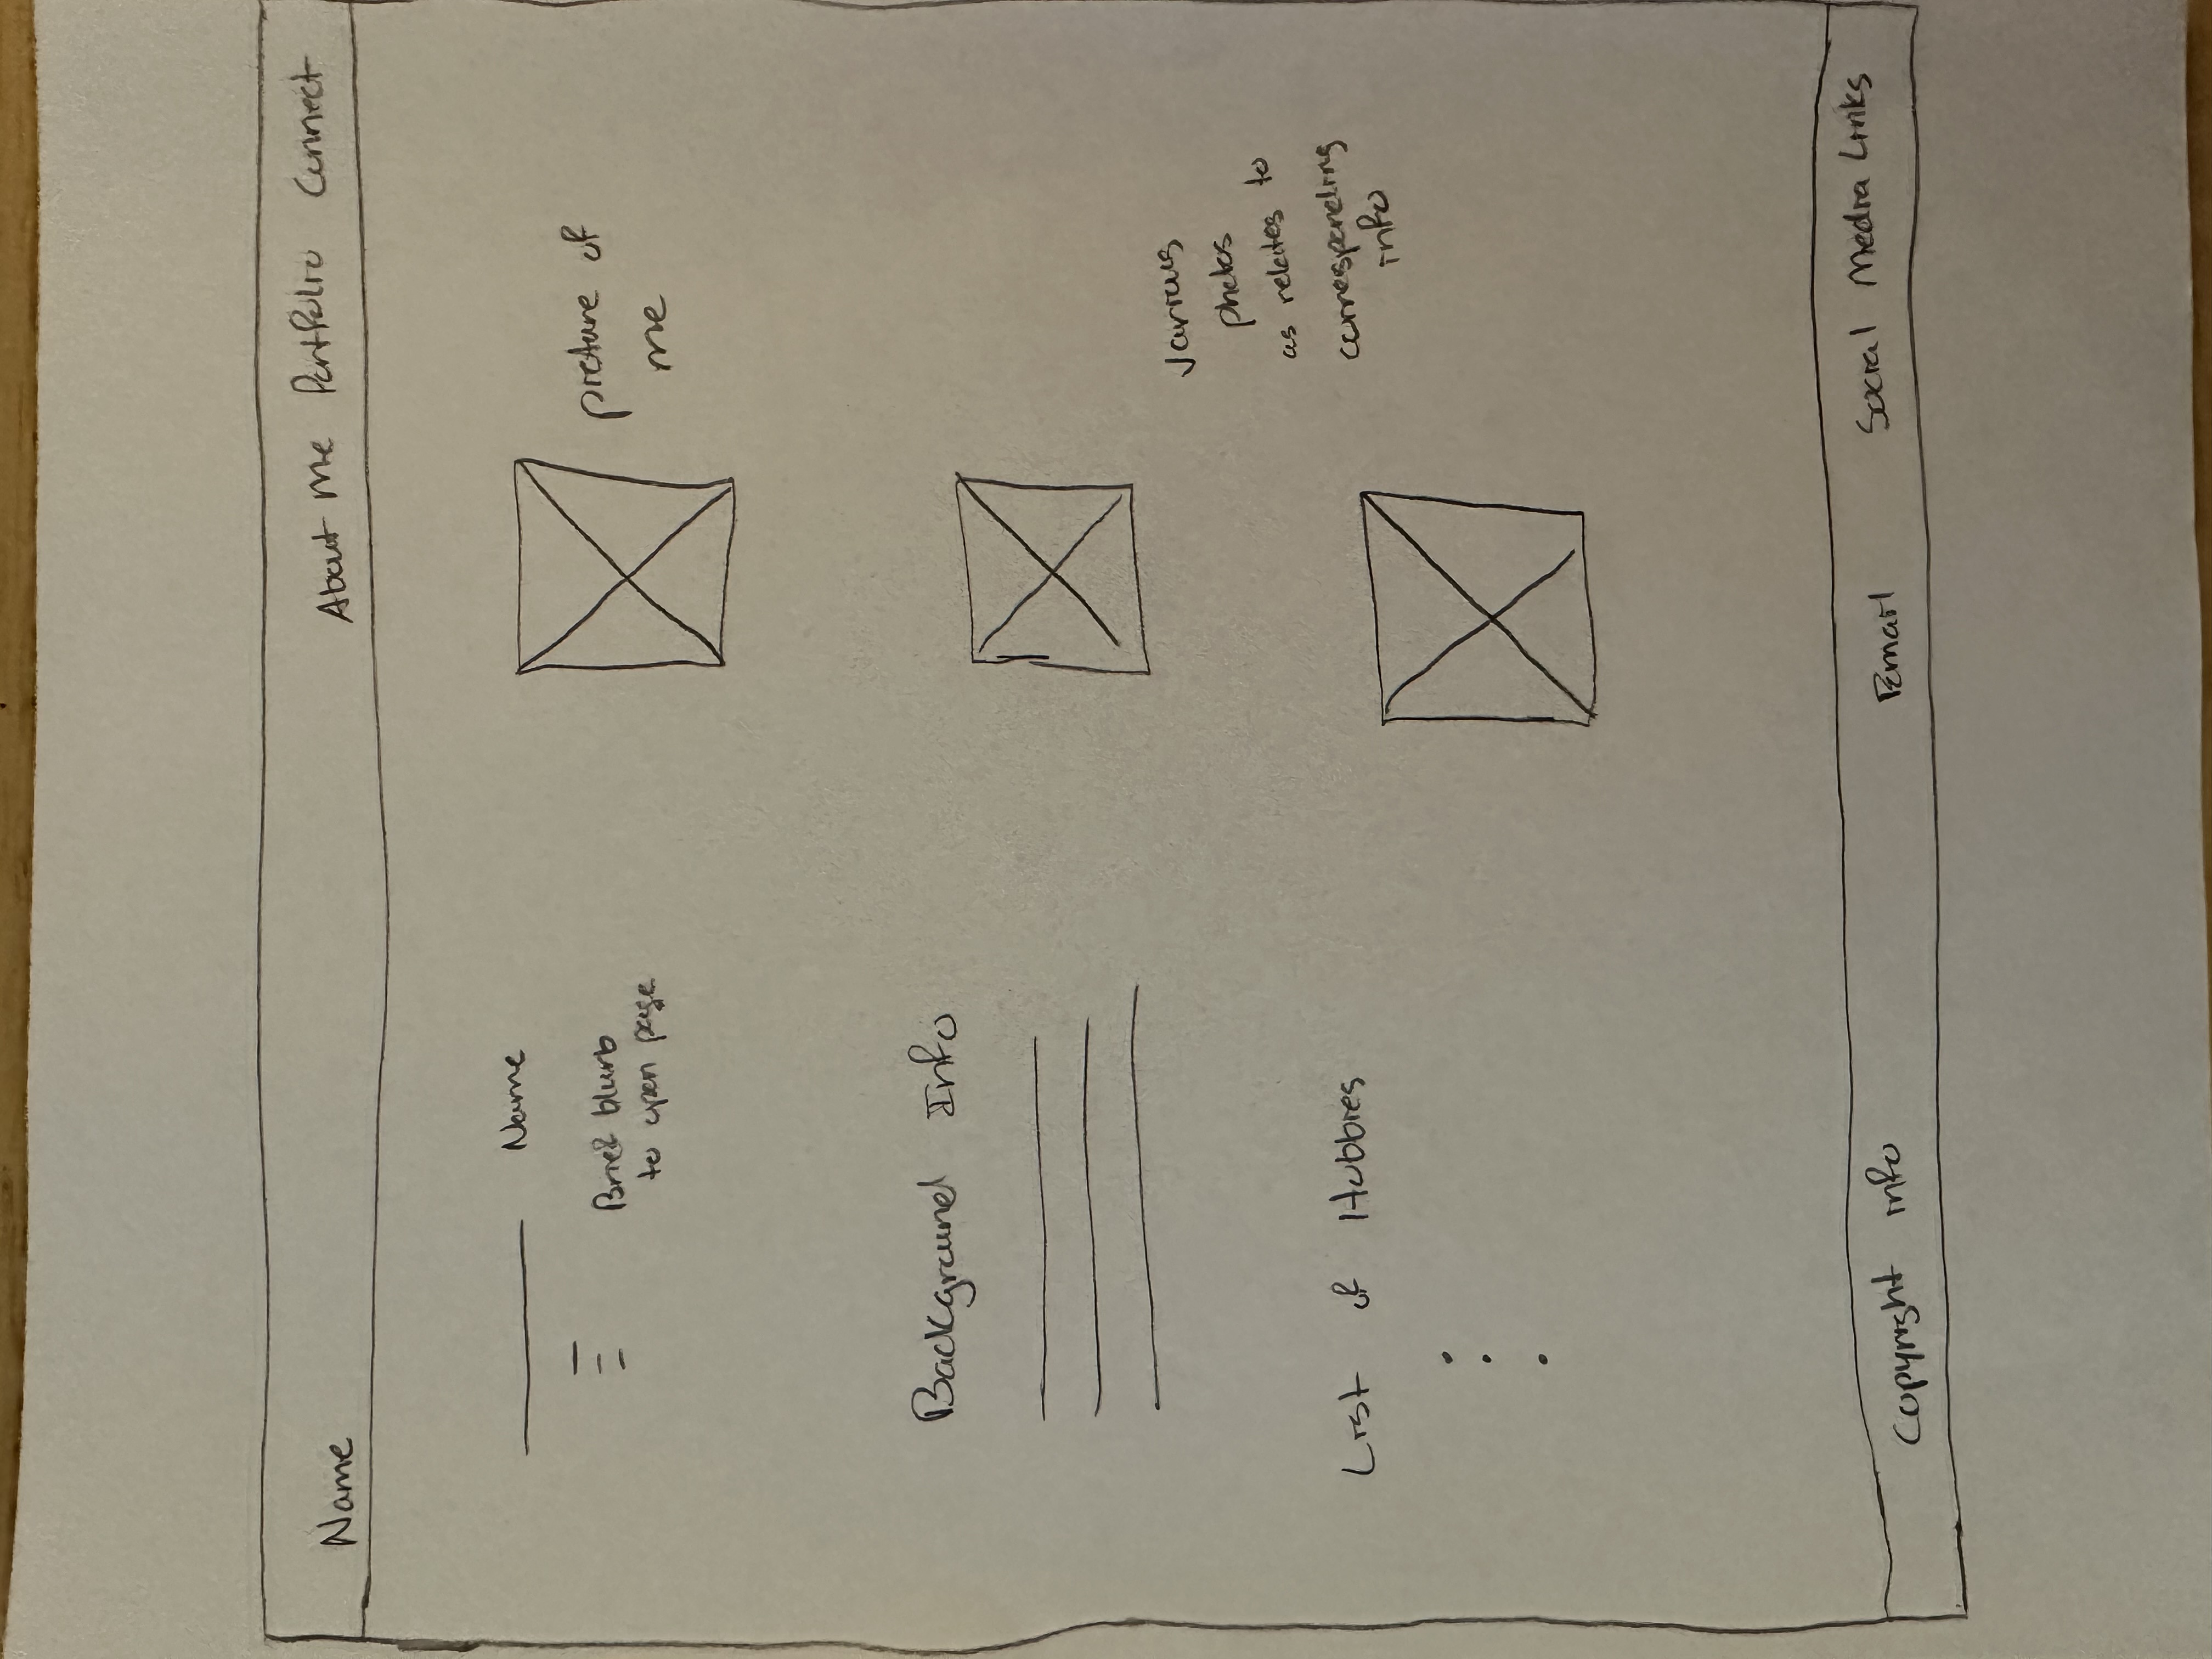 Name
About Me Portfolio Connect
Name
Brief blurb
to open page
picture of
me
Background Info
various
photos
as relates to
corresponding
info
List of Hobbies
Copyright info
Email
Social Media Links